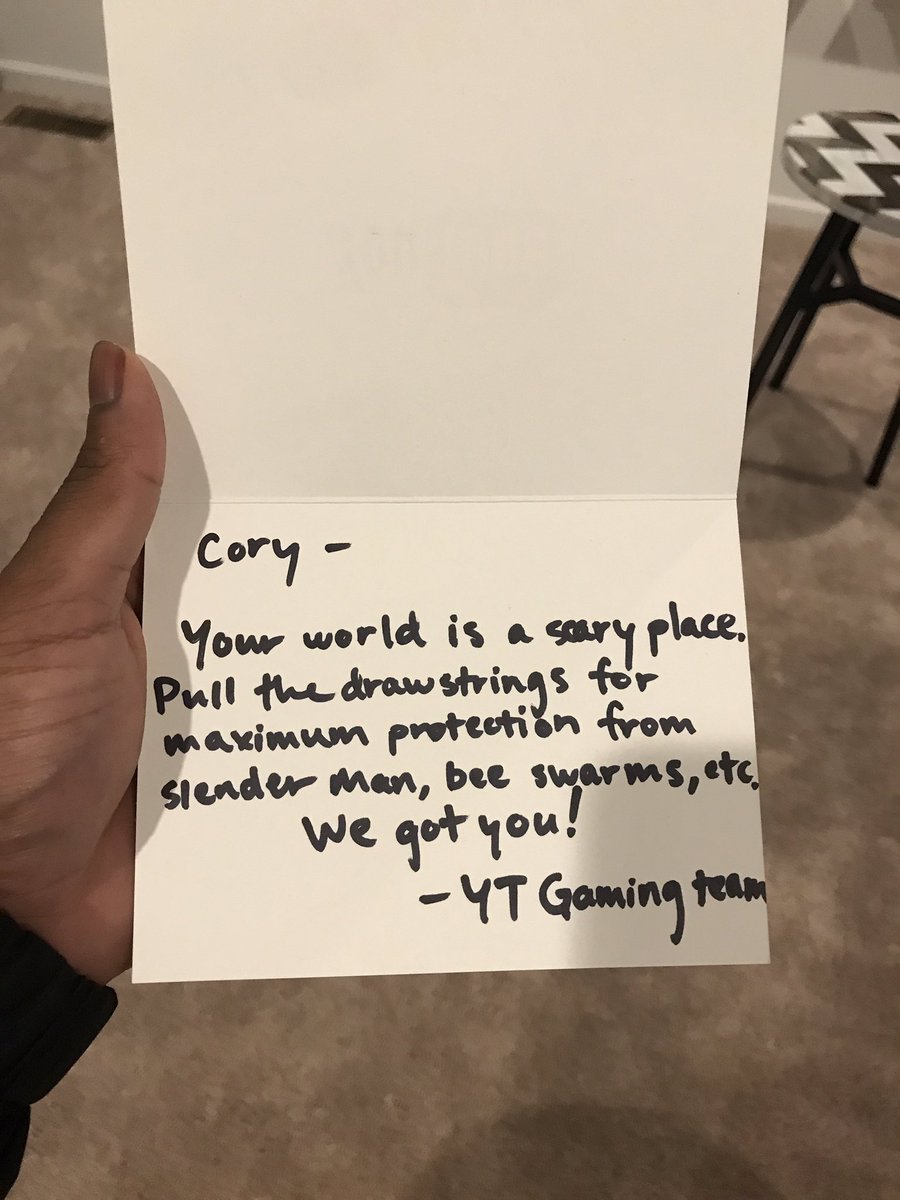 Cory -
Your world is a scary place.
Pull the drawstrings for
maximum protection from
slender man, bee swarms, etc.
We got you!
- YT Gaming team